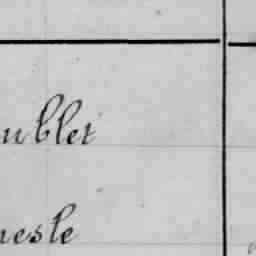 ublet
nesle